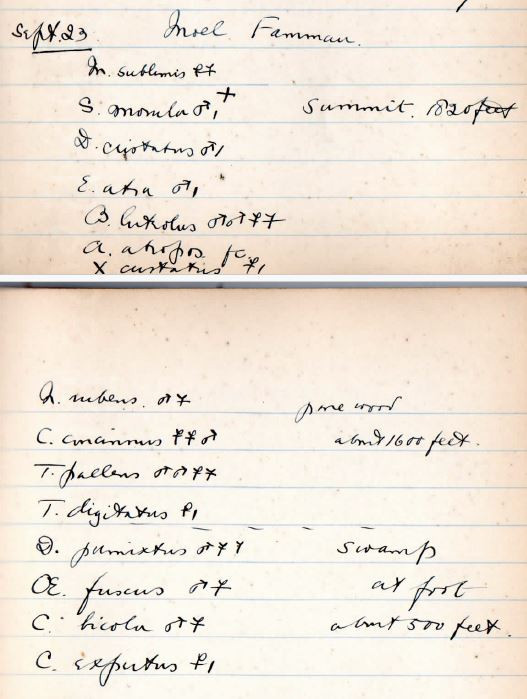 Sept. 23 Moel Famman.
M. sublimis ♀♀
S. monula ♂1 + Summit. 1820 feet
D. cristatus ♂1
E. atra ♂1
B. luteolus ♂♂♀♀
A. atropos fc.
X custatus ♀1
N. rubens. ♂♀ pine wood
C. concinnus ♀♀♂ about 1600 feet.
T. pallens ♂♂♀♀
T. digitatus ♀1
D. pumixtus ♂♀♀ swamp
OE. fuscus ♂♀ at foot
C. bicolor ♂♀ about 500 feet.
C. expertus ♀1